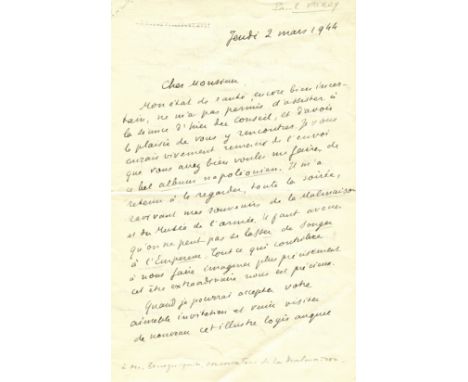 Paul Valéry
Jeudi 2 mars 1944
Cher Monsieur,
Mon état de santé, encore bien incer-
tain, ne m'a pas permis d'assister à
la séance d'hier du Conseil, et d'avoir
le plaisir de vous y rencontrer. Je vous
aurais vivement remercié de l'envoi
que vous avez bien voulu me faire, de
ce bel album napoléonien. Il m'a
retenu à le regarder, toute la soirée,
ravivant mes souvenirs de la Malmaison
et du Musée de l'armée. Il faut avouer
qu'on ne peut pas se lasser de songer
à l'Empereur. Tout ce qui contribue
à nous faire imaginer plus précisément
cet être extraordinaire nous est précieux.
Quand je pourrai accepter votre
aimable invitation et venir visiter
de nouveau cet illustre logis auquel
à Mr. conservateur de la Malmaison.